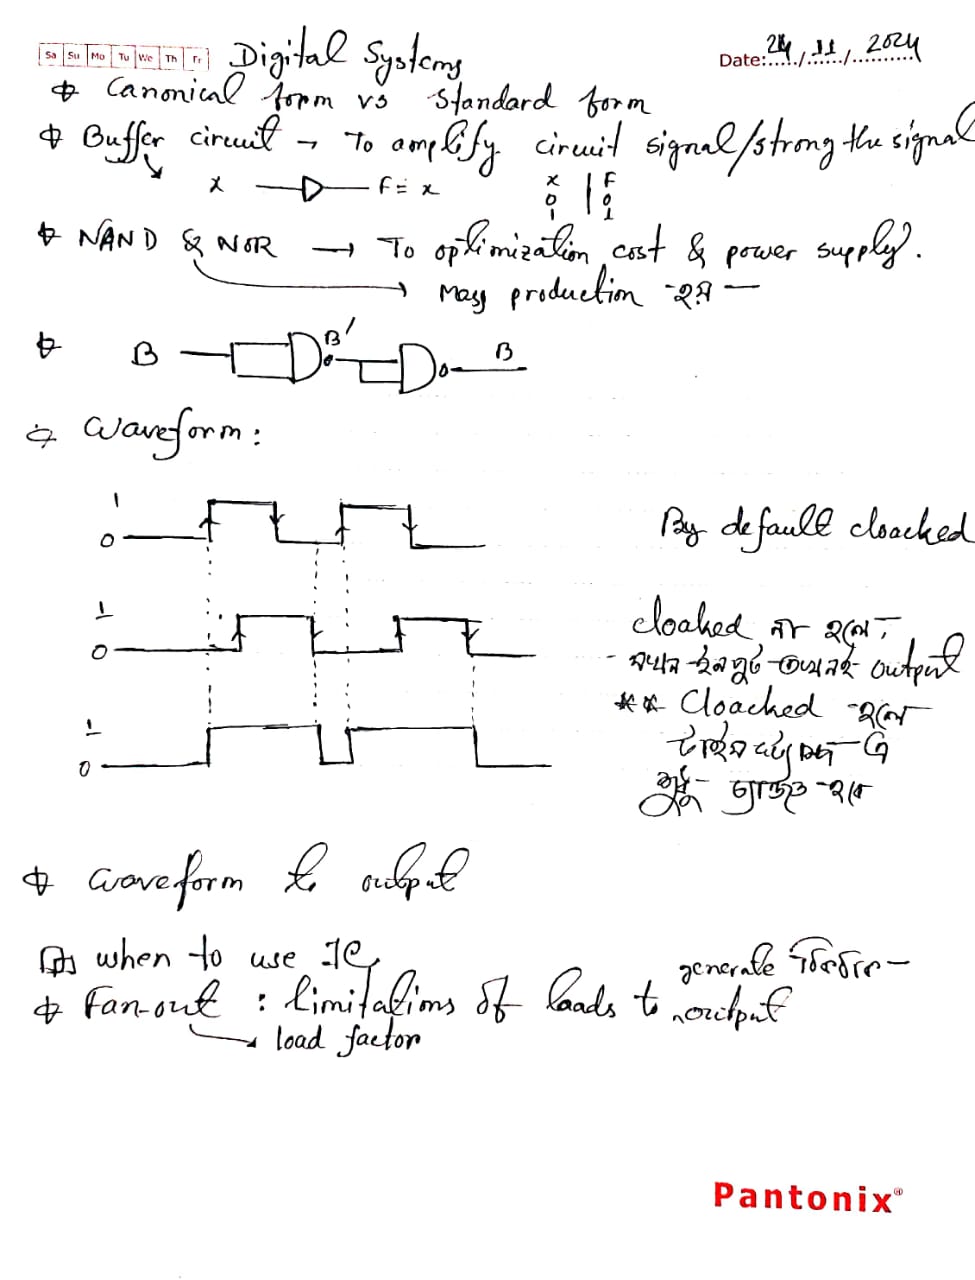 Sa Su Mo Tu We Th Fr
Digital Systems
Date: 24 / 11 / 2024
Canonical form vs Standard form
Buffer circuit → To amplify circuit signal/strong the signal
x F = x
x F
0 0
1 1
NAND & NOR → To optimization cost & power supply.
Mass production হয়
B B' B
Waveform:
1
0
By default cloacked
1
0
cloaked না হলে,
যখন ইনপুট তখনই output
** Cloacked হলে
টাইম
শুধু চ্যাঞ্জ হবে
1
0
Waveform to output
when to use IC,
generate
Fan-out : limitations of loads to output
load factor
Pantonix®